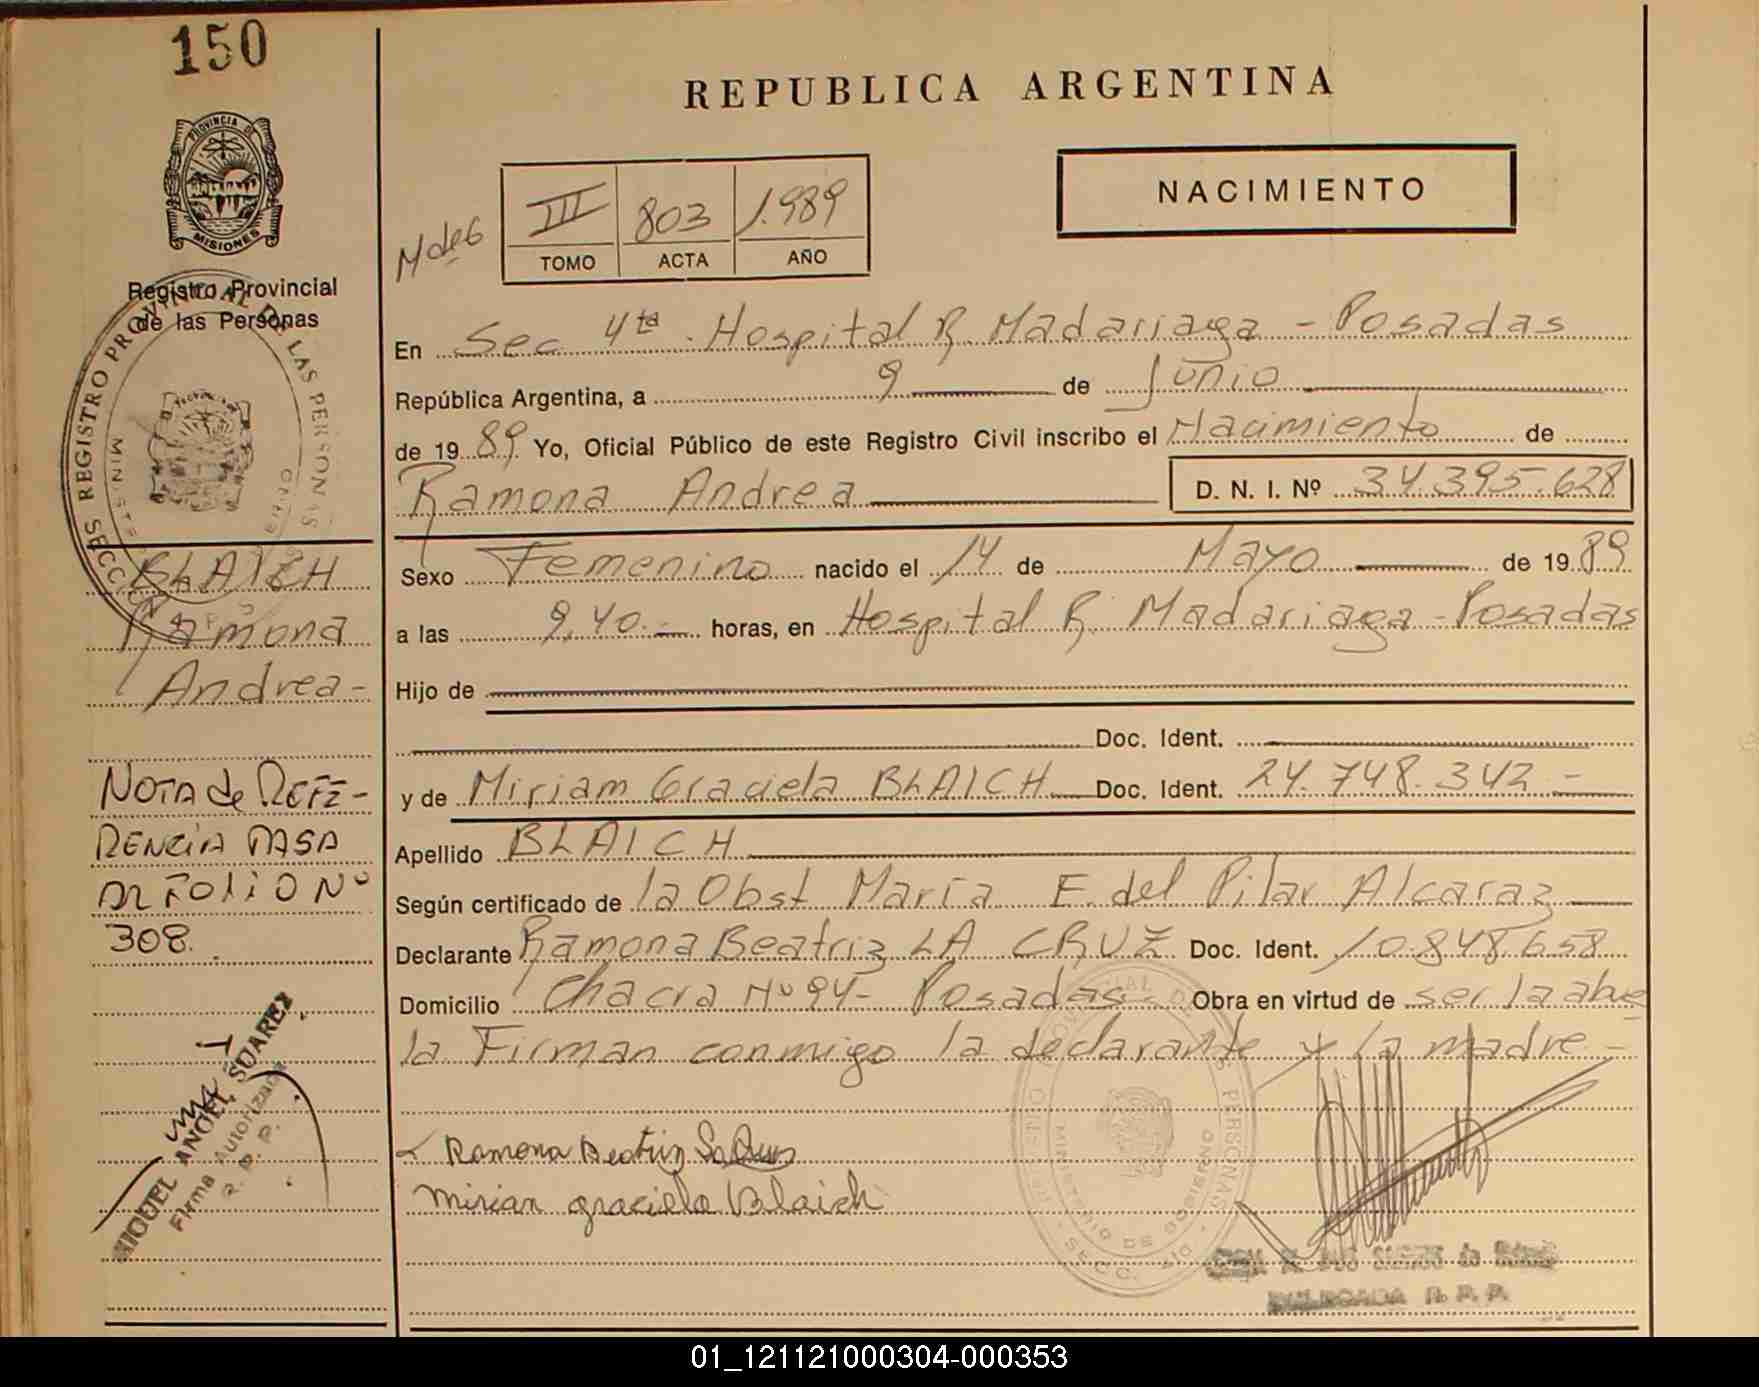 150
REPUBLICA ARGENTINA
PROVINCIA DE
MISIONES
Registro Provincial
de las Personas
M de 6
III 803 1.989
TOMO ACTA AÑO
NACIMIENTO
En Sec 4ta. Hospital R. Madariaga - Posadas
República Argentina, a 9 de Junio
de 1989 Yo, Oficial Público de este Registro Civil inscribo el Nacimiento de
Ramona Andrea D. N. I. Nº 34.395.628
Sexo Femenino nacido el 14 de Mayo de 1989
a las 9,40.- horas, en Hospital R. Madariaga - Posadas
Hijo de
Doc. Ident.
y de Miriam Graciela BLAICH Doc. Ident. 24.748.342 -
Apellido BLAICH
Según certificado de la Obst María E. del Pilar Alcaraz
Declarante Ramona Beatriz LA CRUZ Doc. Ident. 10.848.658
Domicilio Chacra Nº 94 - Posadas - Obra en virtud de ser la abue
la Firman conmigo la declarante y la madre -
Ramona Beatriz La Cruz
Mirian graciela Blaich
BLAICH
Ramona
Andrea -
NOTA de REFE-
RENCIA PASA
AL FOLIO Nº
308.
MIGUEL ANGEL SUAREZ
Firma Autorizada
R. P. P.
REGISTRO PROVINCIAL DE LAS PERSONAS
MINISTERIO DE GOBIERNO
DELEGADA R. P. P.
01_121121000304-000353